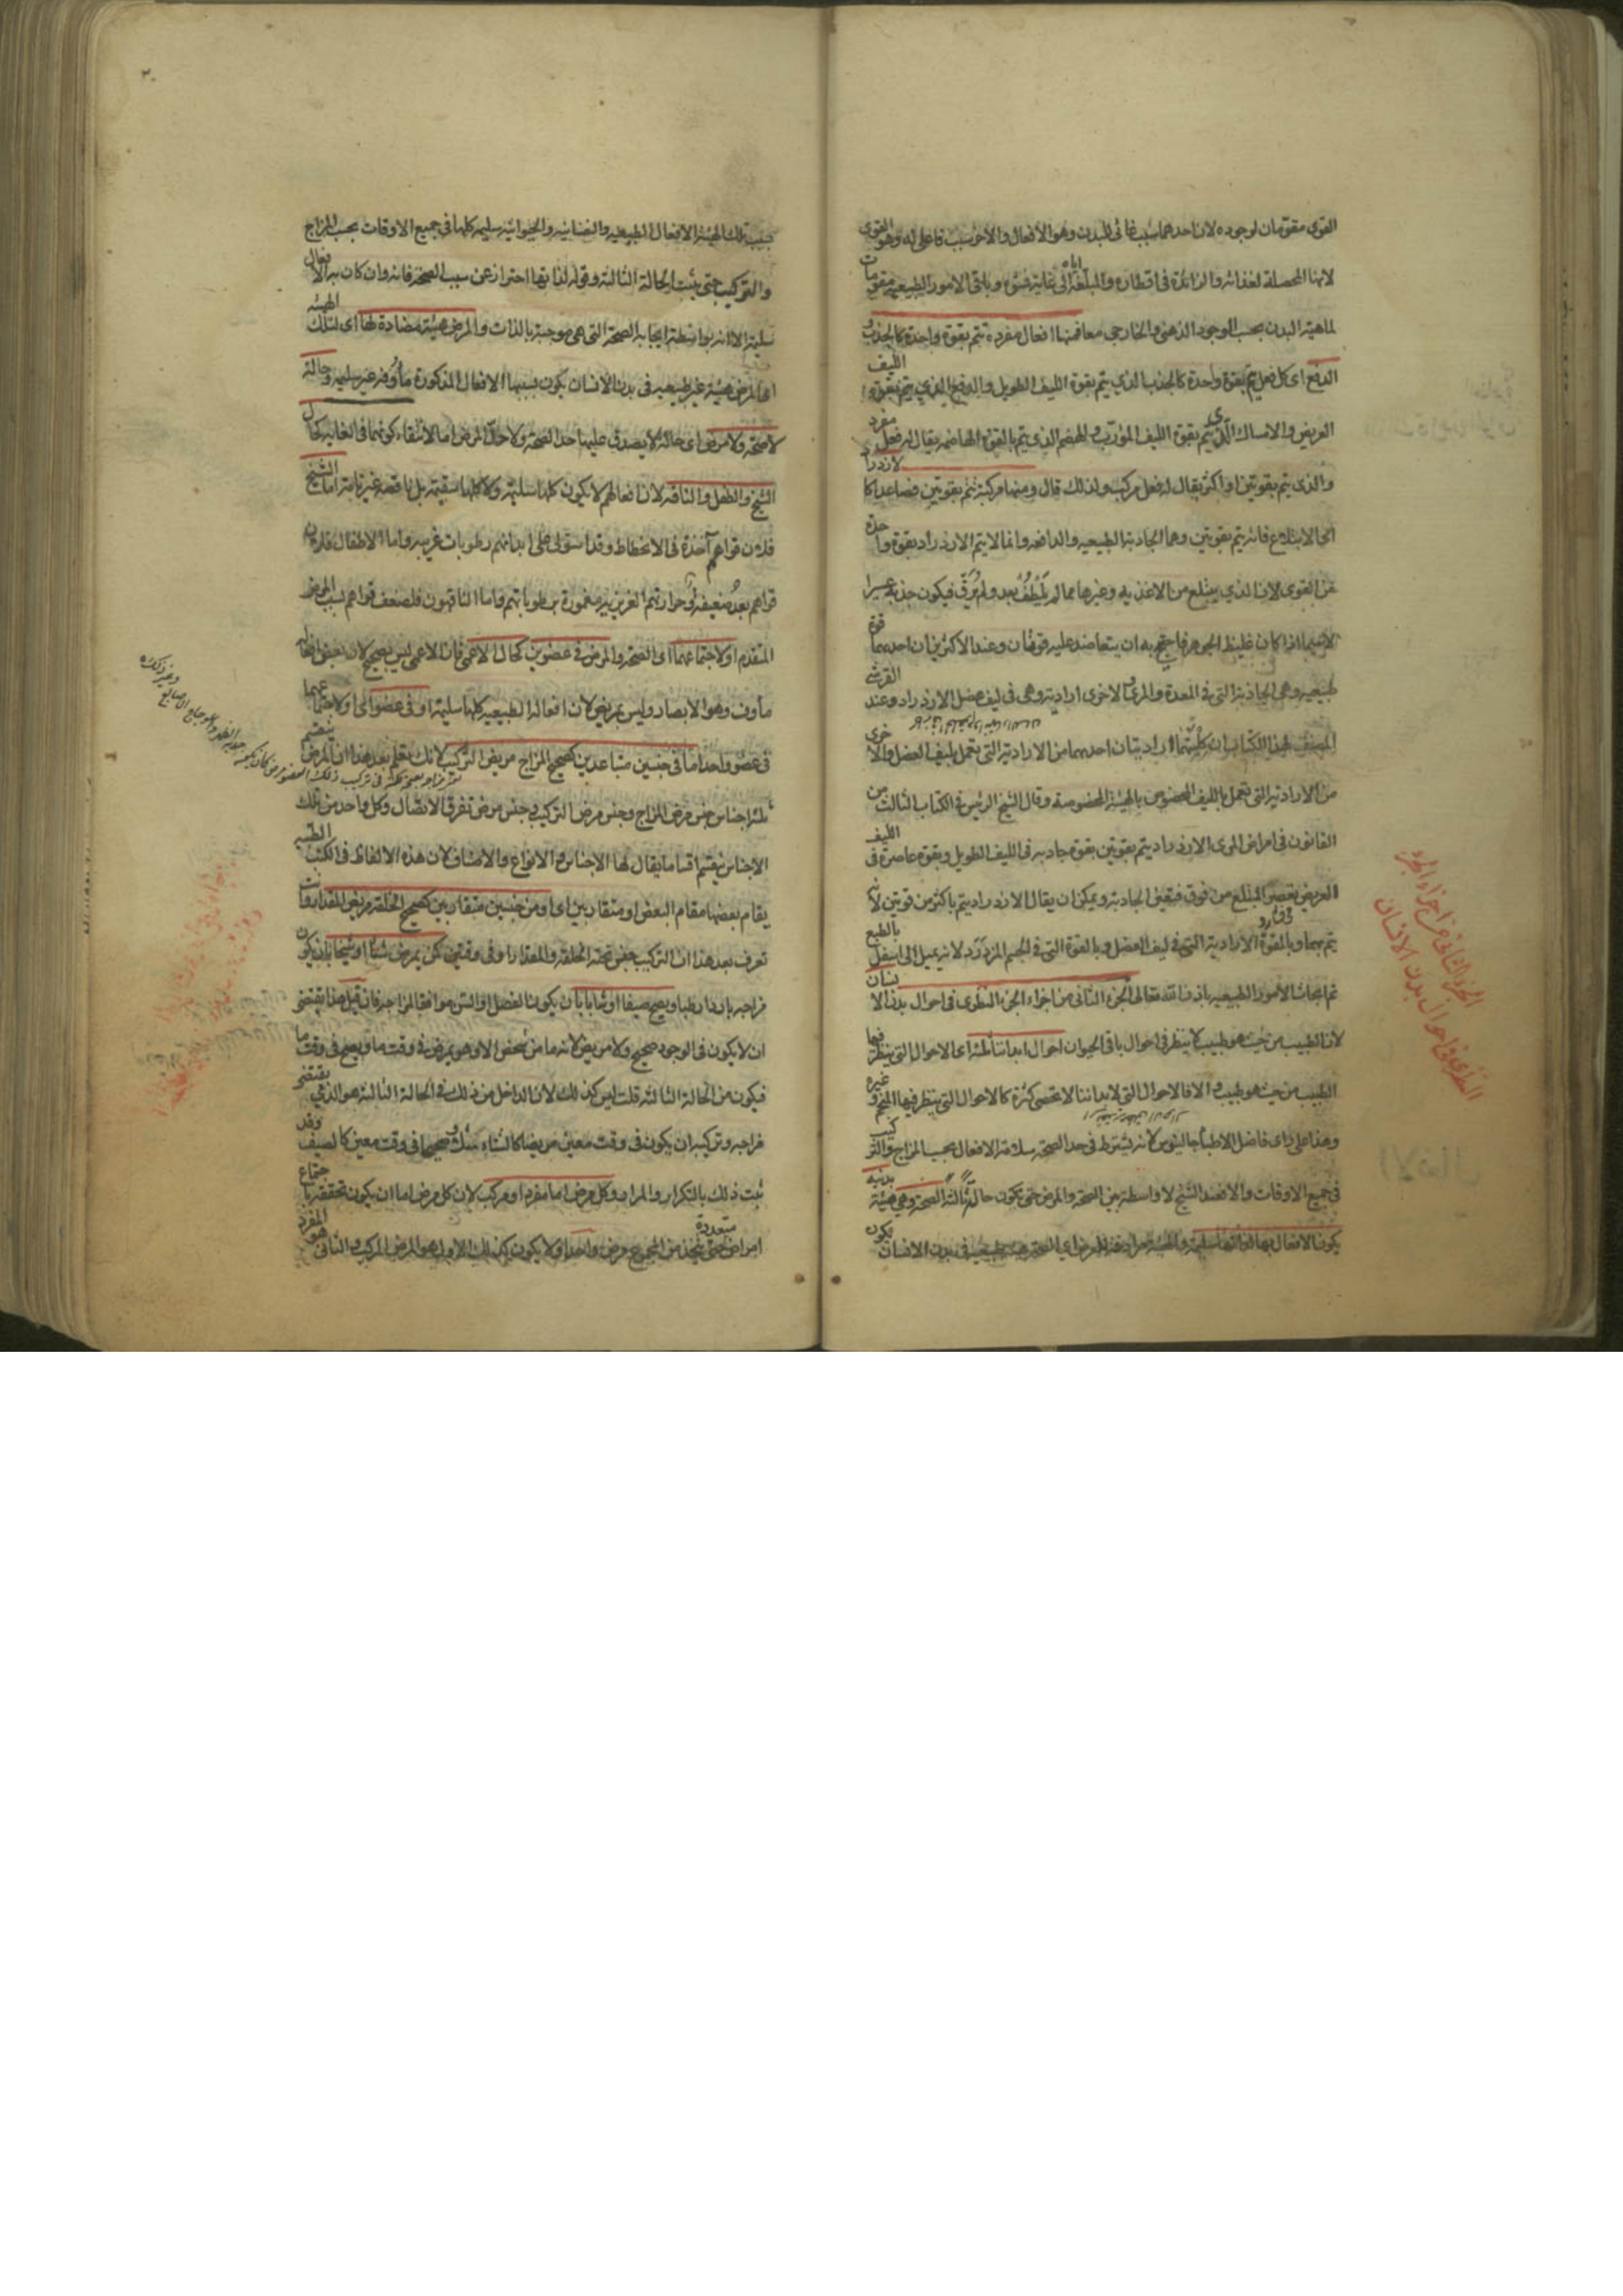 القوى مقومان لوجوده لان احدهما سبب غائى للبدن وهو الافعال والاخر سبب فاعلى له وهو القوى
لانها المحصلة لغذائه والزائدة فى اقطاره والمبلغة اياه الى غاية نشوه وباقى الامور الطبيعيه مقومات
لماهية البدن بحسب الوجود الذهنى والخارجى معا فمنها افعال مفرده تتم بقوة واحدة كالجذب و
الدفع اى كل فعل يتم بقوة واحدة كالجذب الذي يتم بقوة الليف الطويل والدفع الذي يتم بقوة الليف
العريض والامساك الذى يتم بقوة الليف المؤرب والهضم الذى يتم بالقوة الهاضمه يقال له فعل مفرد
والذى يتم بقوتين او اكثر يقال له فعل مركب ولذلك قال ومنها مركبة تتم بقوتين فصاعدا كالازدراد
اى الابتلاع فانه يتم بقوتين وهما الجاذبة الطبيعيه والدافعه وانما لا يتم الازدراد بقوة واحدة
من القوى لان الذي يبتلع من الاغذيه وغيرها مما لم يلطف بعد ولم يرق فيكون جذبه عسيرا
لاسيما اذا كان غليظ الجوهر فاحتيج به ان يتعاضد عليه قوتان وعند الاكثرين ان احدهما قوة
طبيعيه وهى الجاذبة التى فى المعدة والمرئ والاخرى ارادية وهى فى ليف عضل الازدراد وعند القرشى
المصنف لهذا الكتاب ان كليتهما اراديتان احدهما من الارادية التى تعمل بليف العضل والاخرى
من الارادية التى تعمل بالليف المخصوص بالهيئة المخصوصة وقال الشيخ الرئيس فى الكتاب الثالث من
القانون فى امراض المرى الازدراد يتم بقوتين بقوة جاذبه فى الليف الطويل وبقوة عاصرة فى الليف
العريض يعصر المبتلع من فوق فيعين الجاذبة ويمكن ان يقال الازدراد يتم باكثر من قوتين لانه
يتم بهما وبالقوة الارادية التى فى ليف العضل وبالقوة التى فى الجسم المزدرد لانه يميل الى اسفل بالطبع
تم ابحاث الامور الطبيعيه باذن الله تعالى الجزء الثانى من اجزاء الجزء النظرى فى احوال بدن الانسان
لان الطبيب من حيث هو طبيب لا ينظر فى احوال باقى الحيوان احوال ابداننا ثلثة اى الاحوال التى ينظر فيها
الطبيب من حيث هو طبيب والا فالاحوال التى لابداننا لا تحصى كثرة كالاحوال التى ينظر فيها المنجم وغيره
وهذا على راى فاضل الاطباء جالينوس لانه يشترط فى حد الصحة سلامة الافعال بحسب المزاج والتركيب
فى جميع الاوقات والا فعند الشيخ لا واسطة بين الصحة والمرض حتى تكون حالة ثالثة الصحة وهى هيئة بدنية
يكون الافعال بها لذاتها سليمة فى بدن الانسان يكون
الجزء الثانى من اجزاء الجزء
النظرى فى احوال بدن الانسان
بسبب تلك الهيئة الافعال الطبيعيه والنفسانيه والحيوانيه سليمه كلها فى جميع الاوقات بحسب المزاج
والتركيب حتى يثبت الحالة الثالثة وقوله لذاتها احتراز عن سبب الصحة فانه وان كان به الافعال
سليمة الا انه بواسطة ايجابه الصحة التى هى موجبة بالذات والمرض هيئة مضادة لها اى لتلك الهيئه
اى المرض هيئة غير طبيعيه فى بدن الانسان يكون بسببها الافعال المذكورة مأوفه غير سليمه وحالة
لا صحة ولا مرض اى حالة لا يصدق عليها حد الصحة ولا حد المرض اما لانتفاء كونهما فى الغاية كحال
الشيخ والطفل والناقه لان افعالهم لا يكون كلها سليمة ولا كلها سقيمة بل ناقصة غير تامة اما الشيخ
فلان قواهم آخذة فى الانحطاط وقد استولى على ابدانهم رطوبات غريبه واما الاطفال فلان
قواهم بعد ضعيفة وحرارتهم الغريزيه مغمورة برطوباتهم واما الناقهون فلضعف قواهم بسبب المرض
المتقدم او لاجتماعهما اى الصحة والمرض فى عضوين كحال الاعمى فان الاعمى ليس بصحيح لان بعض افعاله
مأوف وهو الابصار وليس بمريض لان افعاله الطبيعيه كلها سليمة او فى عضو اى او لاجتماعهما
فى عضو واحد اما فى جنسين متباعدين كصحيح المزاج مريض التركيب لانك تعلم بعد هذا ان المرض ينقسم
ثلثة اجناس جنس مرض المزاج وجنس مرض التركيب وجنس مرض تفرق الاتصال وكل واحد من تلك
الاجناس ينقسم اقساما يقال لها الاجناس والانواع والاصناف لان هذه الالفاظ فى الكتب الطبيه
يقام بعضها مقام البعض او متقاربين اى او من جنسين متقاربين كصحيح الخلقة مريض المقدار وانت
تعرف بعد هذا ان التركيب جنس تحته الخلقة والمقدار او فى وقتين كمن يمرض شتاء او شيخا بان يكون
مزاجه باردا رطبا ويصح صيفا او شابا بان يكون الفصل او السن موافقا لمزاجه فان قيل هذا يقتضى
ان لا يكون فى الوجود صحيح ولا مريض لانه ما من شخص الا وهو يمرض فى وقت ما ويصح فى وقت ما
فيكون من الحالة الثالثة قلت ليس كذلك لان الداخل من ذلك فى الحالة الثالثة هو الذي يقتضى
مزاجه وتركيبه ان يكون فى وقت معين مريضا كالشتاء مثلا وصحيحا فى وقت معين كالصيف وقد
ثبت ذلك بالتكرار والمرار وكل مرض اما مفرد او مركب لان كل مرض اما ان يكون تحققه باجتماع
امراض متعددة حتى يتحد من المجموع مرض واحد او لا يكون كذلك الاول هو المرض المركب والثانى هو المفرد